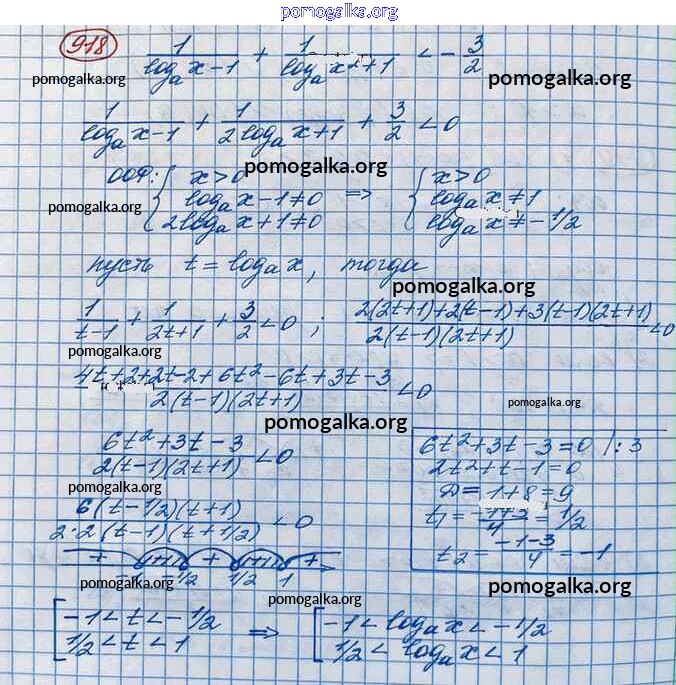 pomogalka.org
918 1/(logₐ x-1) + 1/(logₐ x²+1) < -3/2
pomogalka.org pomogalka.org
1/(logₐ x-1) + 1/(2logₐ x+1) + 3/2 < 0
pomogalka.org
ООФ: { x>0 => { x>0
logₐ x-1≠0 logₐ x≠1
pomogalka.org
2logₐ x+1≠0 logₐ x≠-1/2
пусть t = logₐ x, тогда
pomogalka.org
1/(t-1) + 1/(2t+1) + 3/2 < 0 ; (2(2t+1)+2(t-1)+3(t-1)(2t+1))/(2(t-1)(2t+1)) < 0
pomogalka.org
(4t+2+2t-2+6t²-6t+3t-3)/(2(t-1)(2t+1)) < 0
pomogalka.org
pomogalka.org
(6t²+3t-3)/(2(t-1)(2t+1)) < 0
6t²+3t-3=0 /:3
2t²+t-1=0
pomogalka.org
D=1+8=9
(6(t-1/2)(t+1))/(2·2(t-1)(t+1/2)) < 0
t₁ = (-1+3)/4 = 1/2
t₂ = (-1-3)/4 = -1
+ + +
-1/2 1/2 1
pomogalka.org pomogalka.org
pomogalka.org
[ -1<t<-1/2 => [ -1<logₐ x<-1/2
1/2<t<1 1/2<logₐ x<1